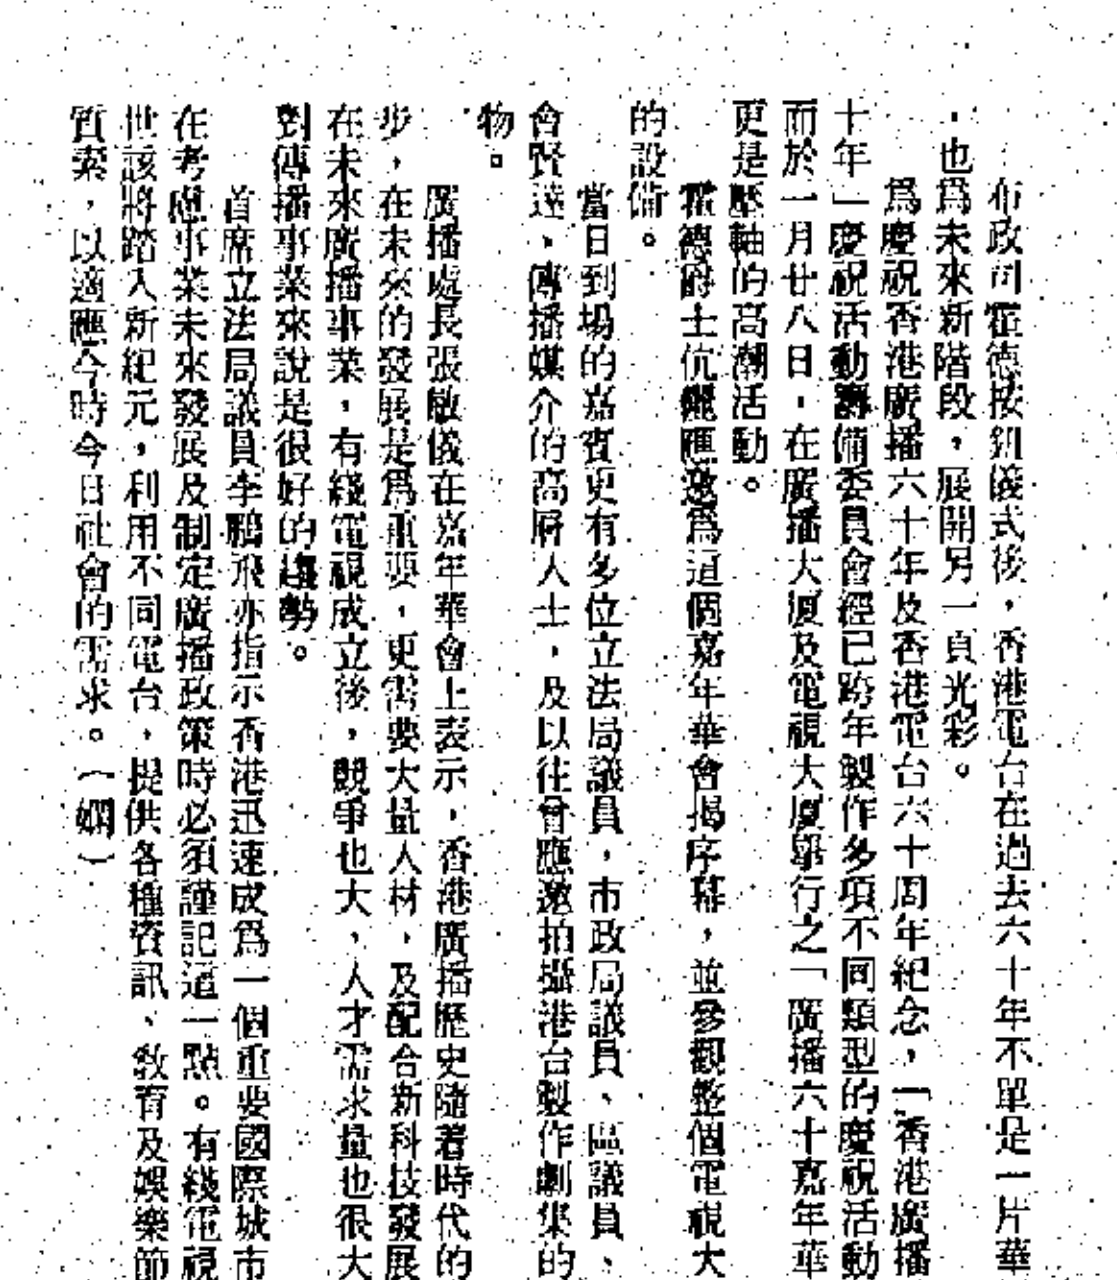 布政司霍德按鈕儀式後，香港電台在過去六十年不單是一片華
，也爲未來新階段，展開另一頁光彩。
爲慶祝香港廣播六十年及香港電台六十周年紀念，「香港廣播
十年」慶祝活動籌備委員會經已跨年製作多項不同類型的慶祝活動
而於一月廿八日，在廣播大厦及電視大厦舉行之「廣播六十嘉年華
更是壓軸的高潮活動。
霍德爵士伉儷應邀爲這個嘉年華會揭序幕，並參觀整個電視大
的設備。
當日到場的嘉賓更有多位立法局議員，市政局議員、區議員、
會賢達，傳播媒介的高層人士，及以往曾應邀拍攝港台製作劇集的
物。
廣播處長張敏儀在嘉年華會上表示，香港廣播歷史隨着時代的
步，在未來的發展是爲重要，更需要大量人材，及配合新科技發展
在未來廣播事業，有綫電視成立後，競爭也大，人才需求量也很大
對傳播事業來說是很好的趨勢。
首席立法局議員李鵬飛亦指示香港迅速成爲一個重要國際城市
在考慮事業未來發展及制定廣播政策時必須謹記這一點。有綫電視
世該將踏入新紀元，利用不同電台，提供各種資訊、敎育及娛樂節
質素，以適應今時今日社會的需求。（嫻）